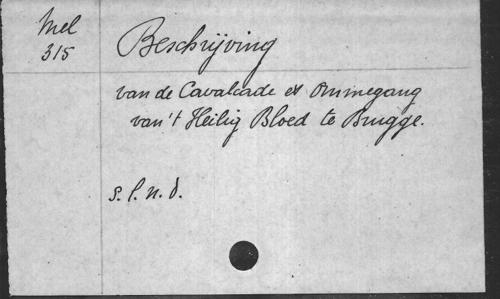 Mel
315
Beschrijving
van de Cavalcade et Ommegang
van 't Heilig Bloed te Brugge.
s. l. n. d.